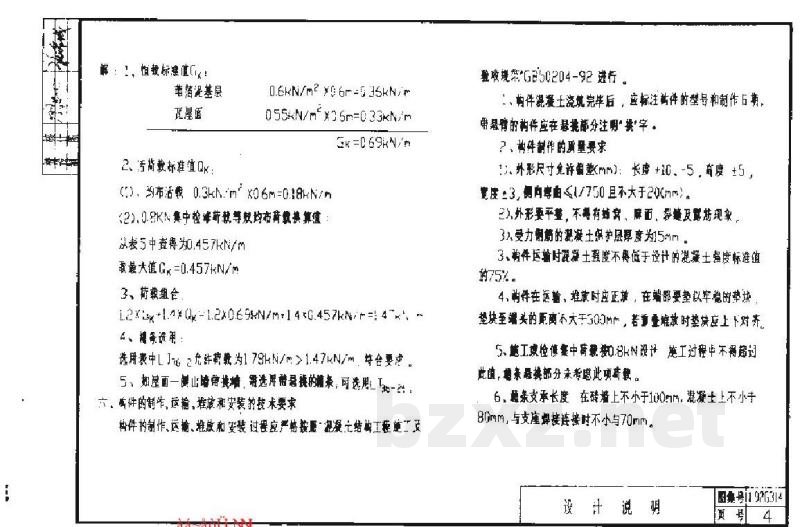 解：1、恒载标准值Gk：
卷筒泥基层 0.6kN/m² X0.6m=0.36kN/m
瓦屋面 0.55kN/m² X0.6m=0.33kN/m
Gk=0.69kN/m
2、活荷载标准值Qk：
(1)、均布活载 0.3kN/m² X0.6m=0.18kN/m
(2)、0.8KN集中检修荷载等效均布荷载换算值：
从表5中查得为0.457kN/m
取最大值Gk=0.457kN/m
3、荷载组合
1.2XGk+1.4XQk=1.2X0.69kN/m+1.4X0.457kN/m=1.47kN/m
4、檩条选用：
选用表中LJ16-2允许荷载为1.78kN/m>1.47kN/m 符合要求。
5、如屋面一侧山墙带挑檐，需选用带悬挑的檩条，可选用
六、构件的制作、运输、堆放和安装的技术要求
构件的制作、运输、堆放和安装过程应严格按照"混凝土结构工程施工及
验收规范"GB50204-92 进行。
1、构件混凝土浇筑完毕后，应标注构件的型号和制作日期，
带悬臂的构件应在悬挑部分注明"挑"字。
2、构件制作的质量要求
1)、外形尺寸允许偏差(mm)：长度+10、-5，高度 ±5，
宽度±3，侧向弯曲≤(L/750且不大于20mm)。
2)、外形要平整，不得有蜂窝、麻面、裂缝及露筋现象。
3)、受力钢筋的混凝土保护层厚度为15mm。
3、构件运输时混凝土强度不得低于设计的混凝土强度标准值
的75%。
4、构件在运输、堆放时应正放，在端部要垫以牢稳的垫块，
垫块至端头的距离不大于300mm，若重叠堆放时垫块应上下对齐。
5、施工或检修集中荷载按0.8kN设计 施工过程中不得超过
此值，檩条悬挑部分未考虑此项荷载。
6、檩条支承长度 在砖墙上不小于100mm，混凝土上不小于
80mm，与支座焊接连接时不小与70mm。
bzxz.net
设计说明
图集号 LJ92G314
页 号 4